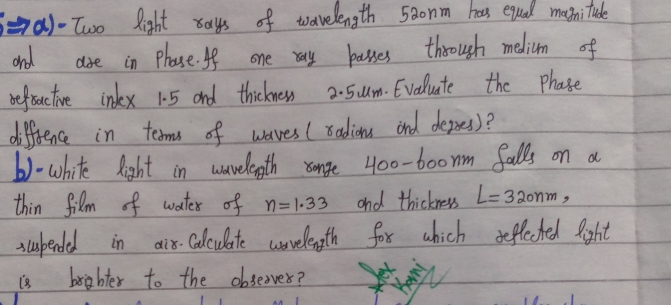 5⇒a)- Two light rays of wavelength 520nm has equal magnitude
and are in Phase. If one ray passes through medium of
refractive index 1.5 and thickness 2.5um. Evaluate the Phase
diffrence in terms of waves ( radians and degres)?
b)- White light in wavelegth range 400-600nm falls on a
thin film of water of n=1.33 and thickness L=320nm,
suspended in air. Calculate wavelegth for which reflected light
is brighter to the observer?